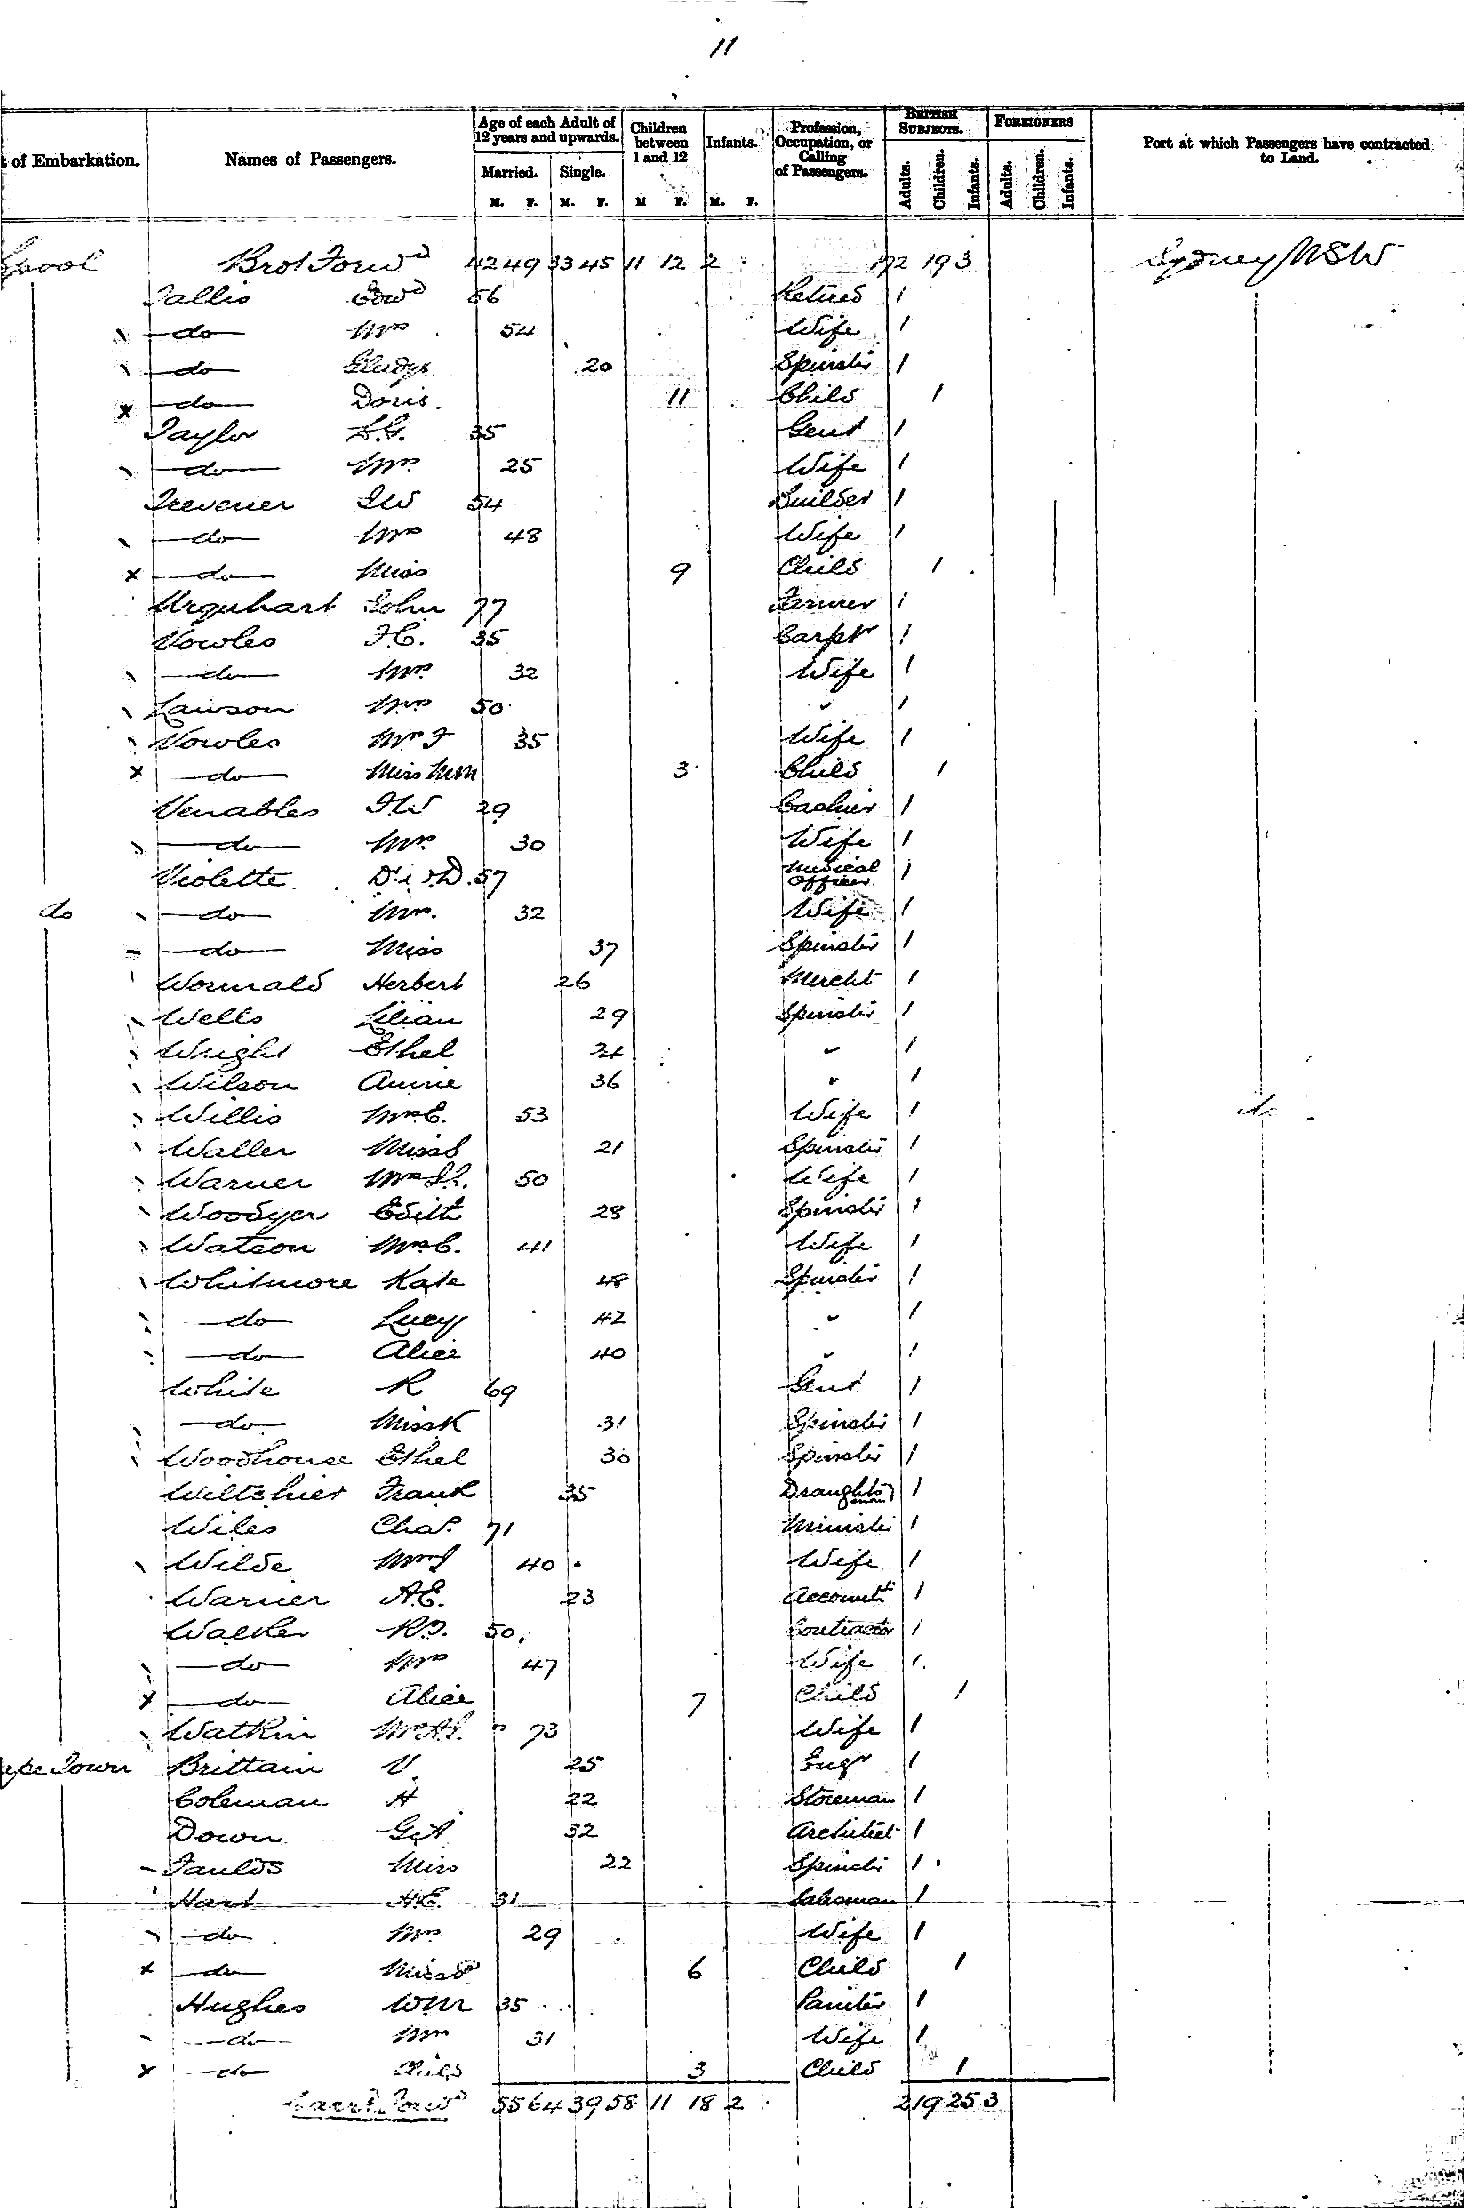 11
of Embarkation. Names of Passengers. Age of each Adult of 12 years and upwards. Married. Single. M. F. M. F. Children between 1 and 12 M F. Infants. M. F. Profession, Occupation, or Calling of Passengers. BRITISH SUBJECTS. Adults. Children. Infants. FOREIGNERS Adults. Children. Infants. Port at which Passengers have contracted to Land.
Lpool Brot Forwd 42 49 33 45 11 12 2 172 19 3 Sydney NSW
Tallis Edwd 56 Retired 1
do Mrs 54 Wife 1
do Gladys 20 Spinster 1
x do Doris. 11 Child 1
Taylor 35 Gent 1
do Mrs 25 Wife 1
Trevener 54 Builder 1
do Mrs 48 Wife 1
x do Miss 9 Child 1
Urquhart John 77 Farmer 1
Vowles F.C. 35 Carptr 1
do Mrs 32 Wife 1
Lawson Mrs 50 " 1
Vowles Mrs F 35 Wife 1
x do Miss 3 Child 1
Venables F.W 29 Cashier 1
do Mrs 30 Wife 1
Violette 57 Medical Officer 1
do do Mrs. 32 Wife 1
do Miss 37 Spinster 1
Wormald Herbert 26 Mercht 1
Wells Lilian 29 Spinster 1
Wright Ethel 24 " 1
Wilson Annie 36 " 1
Willis Mrs E. 53 Wife 1 do
Waller Miss 21 Spinster 1
Warner Mrs 50 Wife 1
Woodyer Edith 28 Spinster 1
Watson Mrs C. 41 Wife 1
Whitmore Kate 48 Spinster 1
do Lucy 42 " 1
do Alice 40 " 1
White R 69 Gent 1
do Miss K 31 Spinster 1
Woodhouse Ethel 30 Spinster 1
Wiltshier Frank 35 Draughtsman 1
Wiles Chas. 71 Minister 1
Wilde Mrs 40 Wife 1
Warner A.E. 23 Accountt 1
Walker 50 Contractor 1
do Mrs 47 Wife 1
x do Alice 7 Child 1
Watkin 73 Wife 1
Cape Town Brittain V. 25 Engr 1
Coleman H 22 Storeman 1
Down G.A 32 Architect 1
Faulds Miss 22 Spinster 1
Hart H.E. 31 Salesman 1
do Mrs 29 Wife 1
x do Miss 6 Child 1
Hughes Wm 35 Painter 1
do Mrs 31 Wife 1
x do Child 3 Child 1
Carrd Forwd 55 64 39 58 11 18 2 219 25 3